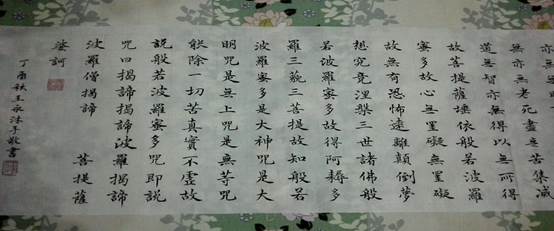 無亦無老死盡無苦集滅
道無智亦無得以無所得
故菩提薩埵依般若波羅
蜜多故心無罣礙無罣礙
故無有恐怖遠離顛倒夢
想究竟涅槃三世諸佛般
若波羅蜜多故得阿耨多
羅三藐三菩提故知般若
波羅蜜多是大神咒是大
明咒是無上咒是無等咒
能除一切苦真實不虛故
說般若波羅蜜多咒即說
咒曰揭諦揭諦波羅揭諦
波羅僧揭諦 菩提薩
婆訶
丁酉秋王永沐手敬書